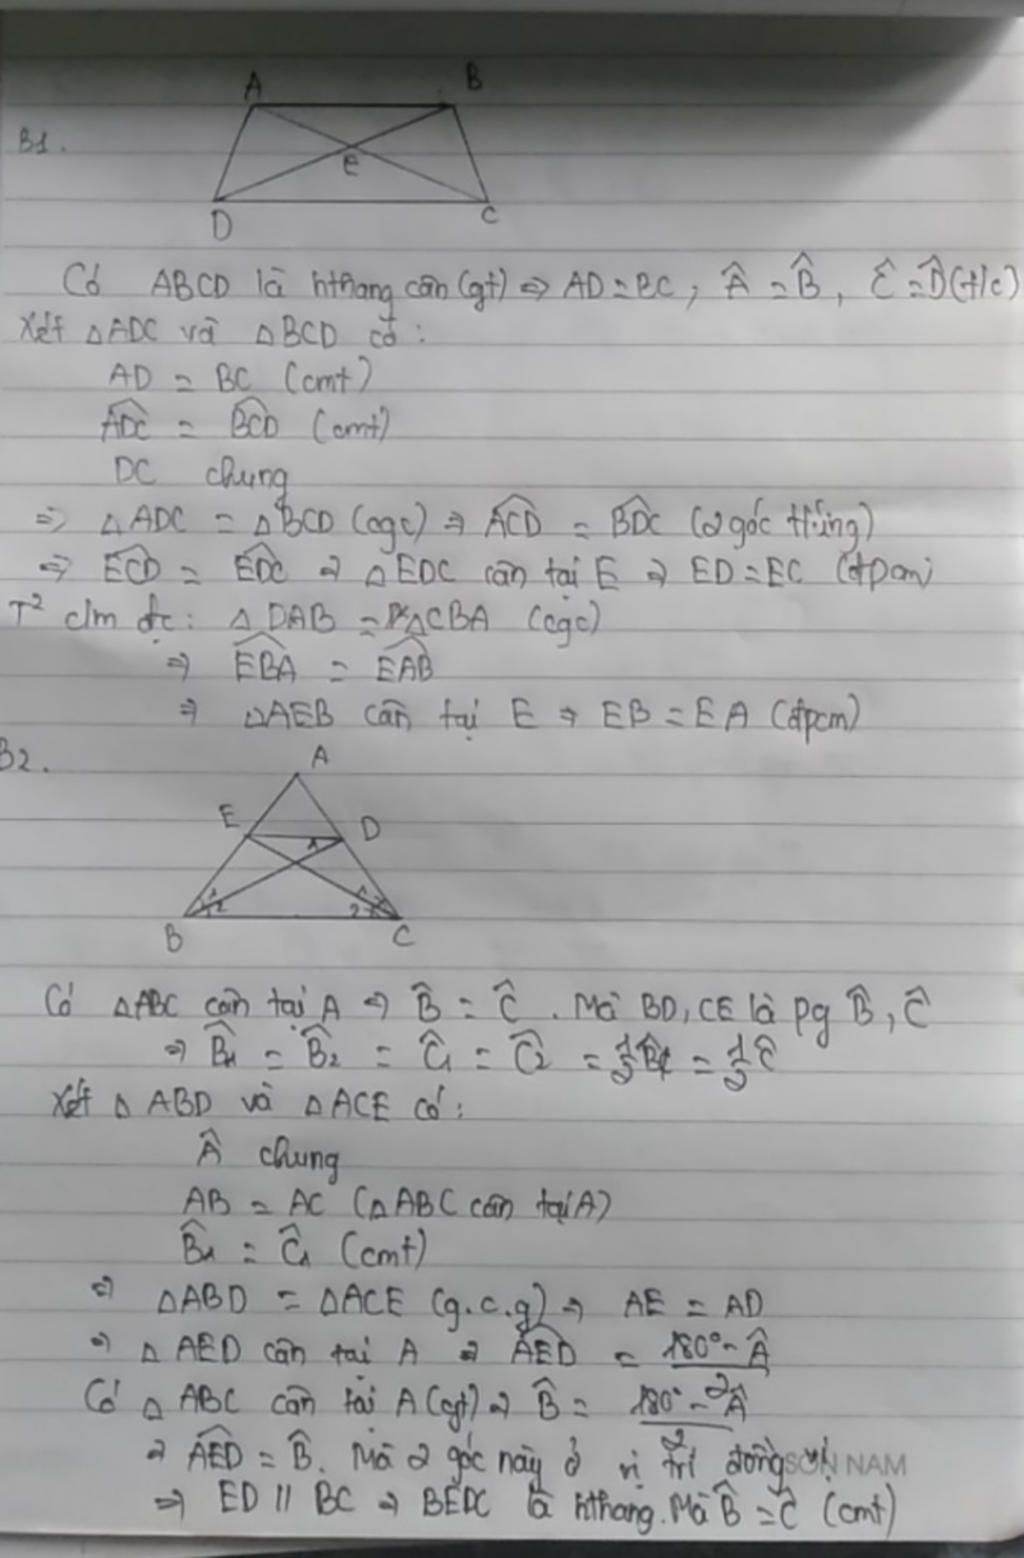 A B
B1.
E
D C
Có ABCD là hthang cân (gt) ⇒ AD = BC, Â = B̂, Ĉ = D̂ (t/c)
Xét △ADC và △BCD có:
AD = BC (cmt)
ADC^ = BCD^ (cmt)
DC chung
⇒ △ADC = △BCD (cgc) ⇒ ACD^ = BDC^ (2 góc tứng)
⇒ ECD^ = EDC^ ⇒ △EDC cân tại E ⇒ ED = EC (đpcm)
T² c/m đc: △DAB = △CBA (cgc)
⇒ EBA^ = EAB^
⇒ △AEB cân tại E ⇒ EB = EA (đpcm)
B2.
A
E D
1
1 2 2 1
B C
Có △ABC cân tại A ⇒ B̂ = Ĉ. Mà BD, CE là pg B̂, Ĉ
⇒ B̂1 = B̂2 = Ĉ1 = Ĉ2 = 1/2 B̂ = 1/2 Ĉ
Xét △ABD và △ACE có:
Â chung
AB = AC (△ABC cân tại A)
B̂1 = Ĉ1 (cmt)
⇒ △ABD = △ACE (g.c.g) ⇒ AE = AD
⇒ △AED cân tại A ⇒ AED^ = 180° - Â / 2
Có △ABC cân tại A (gt) ⇒ B̂ = 180° - Â / 2
⇒ AED^ = B̂. Mà 2 góc này ở vị trí đồng vị
SƠN NAM
⇒ ED // BC ⇒ BEDC là hthang. Mà B̂ = Ĉ (cmt)